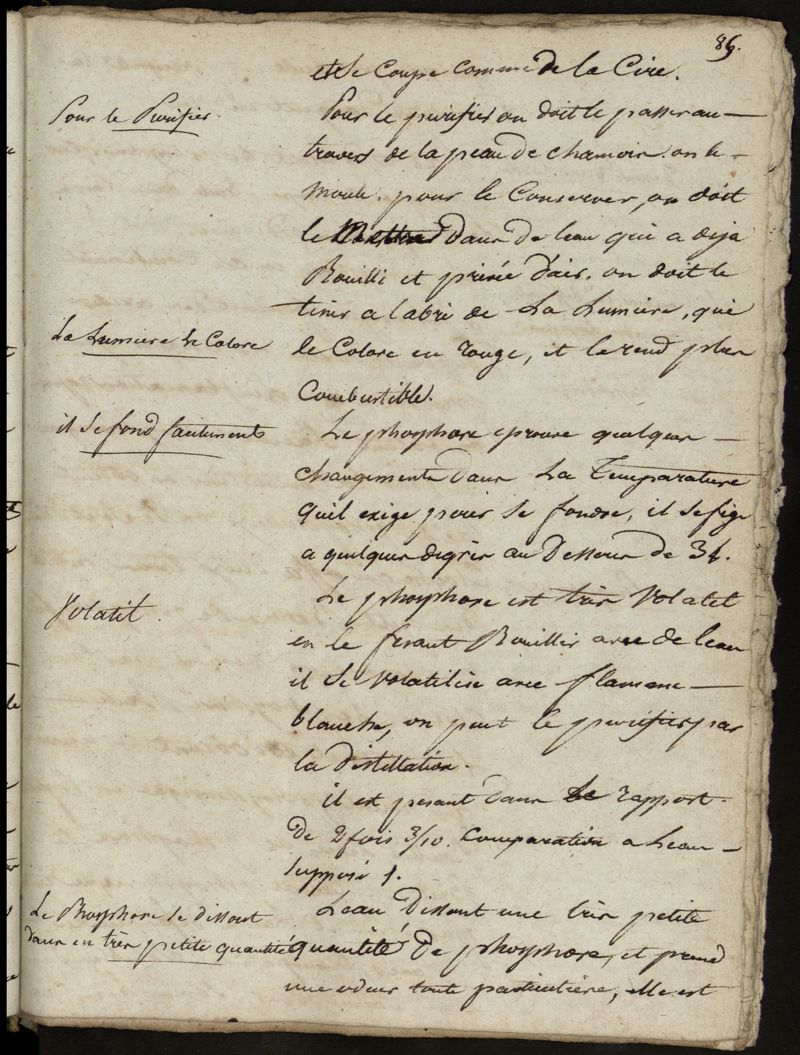 89.
et se Coupe comme de la Cire.
Pour le Purifier.
Pour le purifier on doit le passer au
travers de la peau de chamoir. on le
moule. pour le Conserver, on doit
le Mettre dans de leau qui a deja
Bouilli et privée d'air. on doit le
tenir a labri de La Lumiere, qui
La Lumiere Le Colore
le Colore en rouge, et le rend plus
Combustible.
il se fond facilement
Le phosphore eprouve quelques
changements dans La Temparature
quil exige pour se fondre, il se fige
a quelques degrés au Dessous de 34.
Volatil.
Le phosphore est très Volatil
en le fesant Bouillir avec de leau
il se Volatilise avec flamme
blanche, on peut le purifier par
la distillation.
il est pesant dans Le rapport
de 2 fois 3/10. Comparation a Leau
supposé 1.
Le Phosphore se dissout
dans en très petite quantité
Leau Dissout une très petite
quantité de phosphore, et prend
une odeur toute particutière, elle est